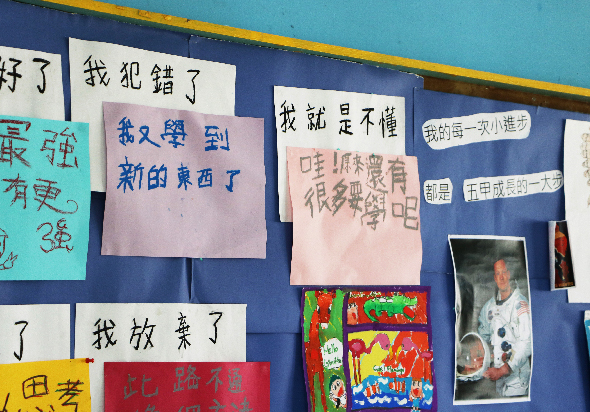 好了
我犯錯了
最強
有更
強
我又學到
新的東西了
我就是不懂
哇!原來還有
很多要學呢
我的每一次小進步
都是 五甲成長的一大步
了
思考
我放棄了
此路不通